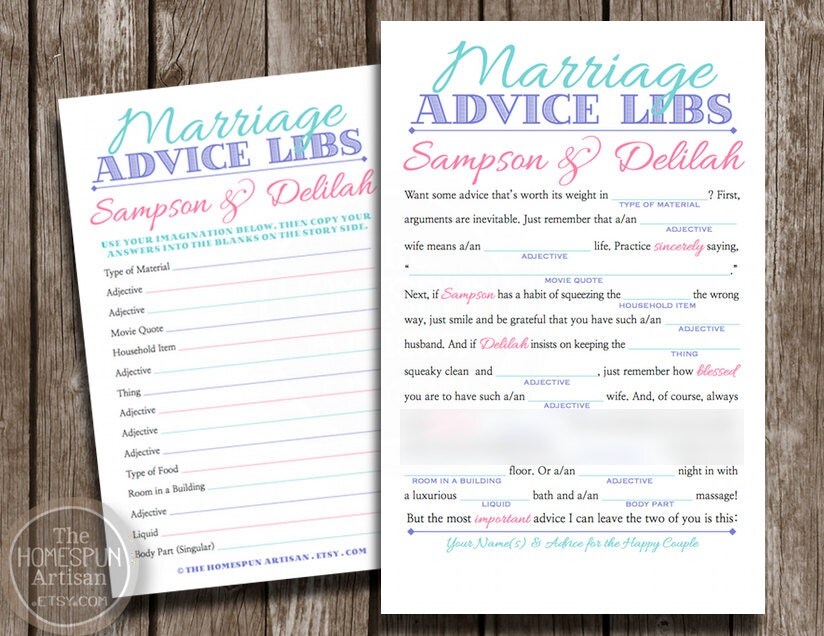 Marriage
ADVICE LIBS
Sampson & Delilah
USE YOUR IMAGINATION BELOW, THEN COPY YOUR
ANSWERS INTO THE BLANKS ON THE STORY SIDE.
Type of Material
Adjective
Adjective
Movie Quote
Household Item
Adjective
Thing
Adjective
Adjective
Adjective
Type of Food
Room in a Building
Adjective
Liquid
Body Part (Singular)
© THE HOMESPUN ARTISAN.ETSY.COM
The
HOMESPUN
Artisan
.ETSY.COM
Marriage
ADVICE LIBS
Sampson & Delilah
Want some advice that's worth its weight in ? First,
TYPE OF MATERIAL
arguments are inevitable. Just remember that a/an
ADJECTIVE
wife means a/an life. Practice sincerely saying,
ADJECTIVE
“ .”
MOVIE QUOTE
Next, if Sampson has a habit of squeezing the the wrong
HOUSEHOLD ITEM
way, just smile and be grateful that you have such a/an
ADJECTIVE
husband. And if Delilah insists on keeping the
THING
squeaky clean and , just remember how blessed
ADJECTIVE
you are to have such a/an wife. And, of course, always
ADJECTIVE
floor. Or a/an night in with
ROOM IN A BUILDING ADJECTIVE
a luxurious bath and a/an massage!
LIQUID BODY PART
But the most important advice I can leave the two of you is this:
Your Name(s) & Advice for the Happy Couple